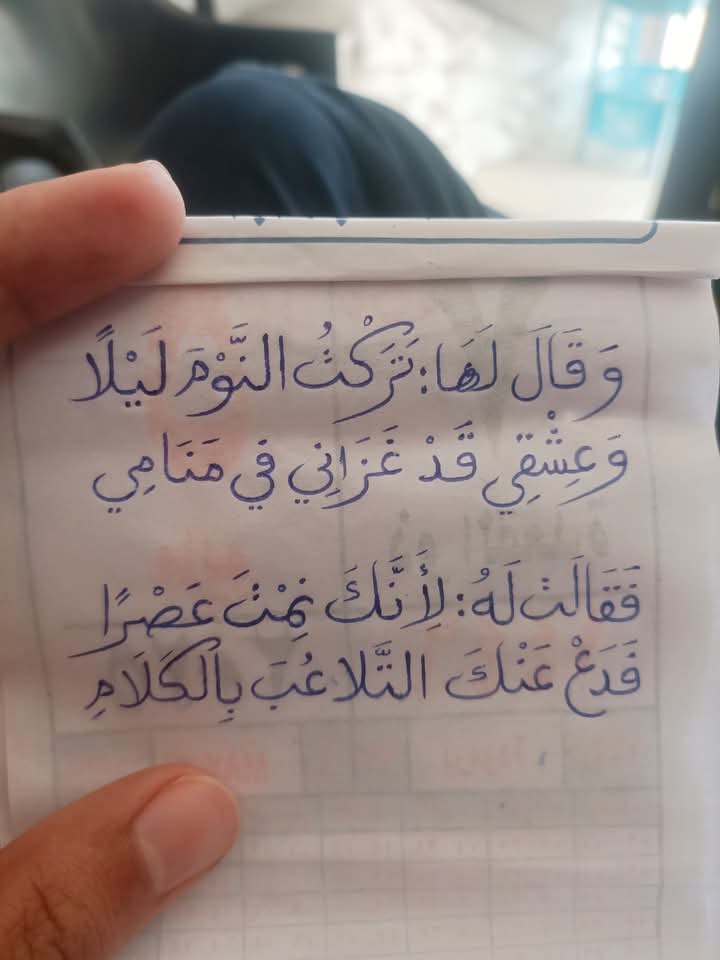 وَقَالَ لَهَا: تَرَكْتُ النَّوْمَ لَيْلًا
وَعِشْقِي قَدْ غَزَانِي فِي مَنَامِي
فَقَالَتْ لَهُ: لِأَنَّكَ نِمْتَ عَصْرًا
فَدَعْ عَنْكَ التَّلَاعُبَ بِالْكَلَامِ